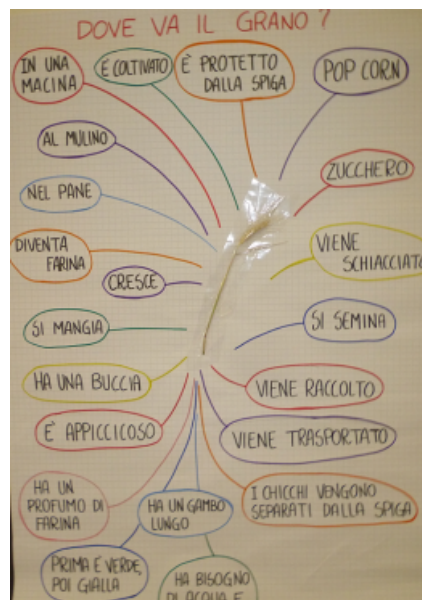 DOVE VA IL GRANO?
IN UNA
MACINA
È COLTIVATO
È PROTETTO
DALLA SPIGA
POP CORN
AL MULINO
ZUCCHERO
NEL PANE
DIVENTA
FARINA
VIENE
SCHIACCIATO
CRESCE
SI MANGIA
SI SEMINA
HA UNA BUCCIA
VIENE RACCOLTO
E' APPICCICOSO
VIENE TRASPORTATO
HA UN
PROFUMO DI
FARINA
HA UN GAMBO
LUNGO
I CHICCHI VENGONO
SEPARATI DALLA SPIGA
PRIMA E' VERDE,
POI GIALLA
HA BISOGNO
DI ACQUA E